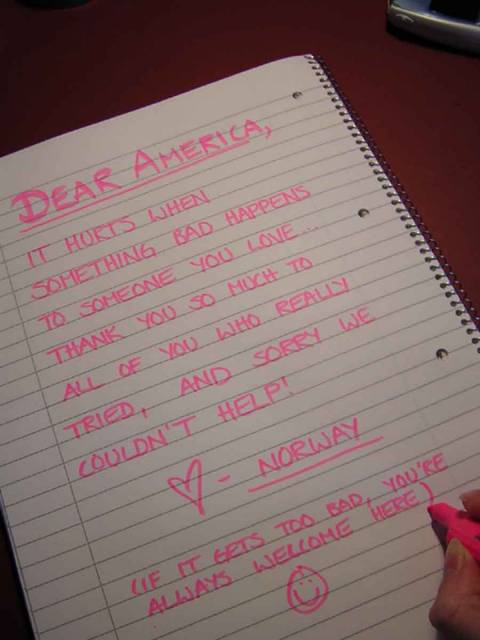 DEAR AMERICA,
IT HURTS WHEN
SOMETHING BAD HAPPENS
TO SOMEONE YOU LOVE...
THANK YOU SO MUCH TO
ALL OF YOU WHO REALLY
TRIED, AND SORRY WE
COULDN'T HELP!
♡ - NORWAY
(IF IT GETS TOO BAD, YOU'RE
ALWAYS WELCOME HERE)